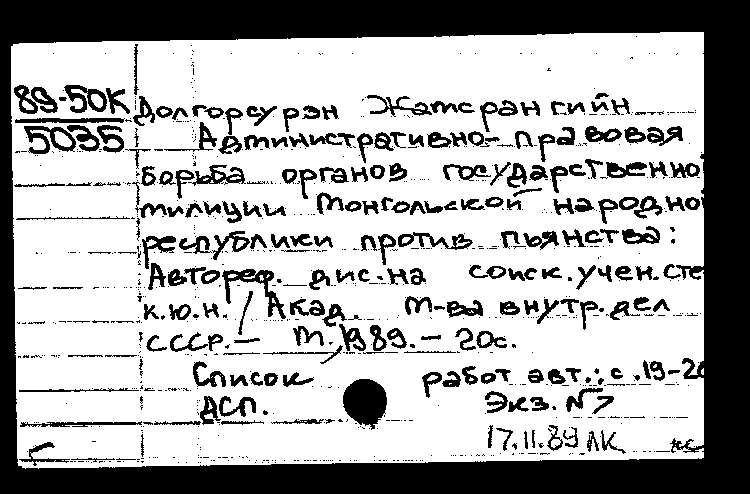 89-50К
5035
Долгорсурэн Жамсрангийн
Административно-правовая
борьба органов государственно
милиции Монгольской народно
республики против пьянства:
Автореф. дис. на соиск. учен. сте
к.ю.н. / Акад. М-ва внутр. дел
СССР. — М., 1989. — 20с.
Список работ авт.: с. 19-20
ДСП. Экз. №7
17.11.89 ЛК